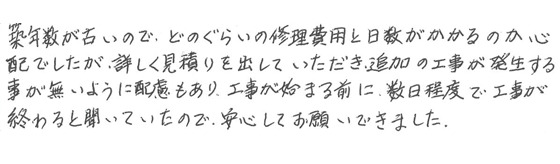 築年数が古いので、どのぐらいの修理費用と日数がかかるのか心
配でしたが、詳しく見積りを出していただき、追加の工事が発生する
事が無いように配慮もあり、工事が始まる前に、数日程度で工事が
終わると聞いていたので、安心してお願いできました。